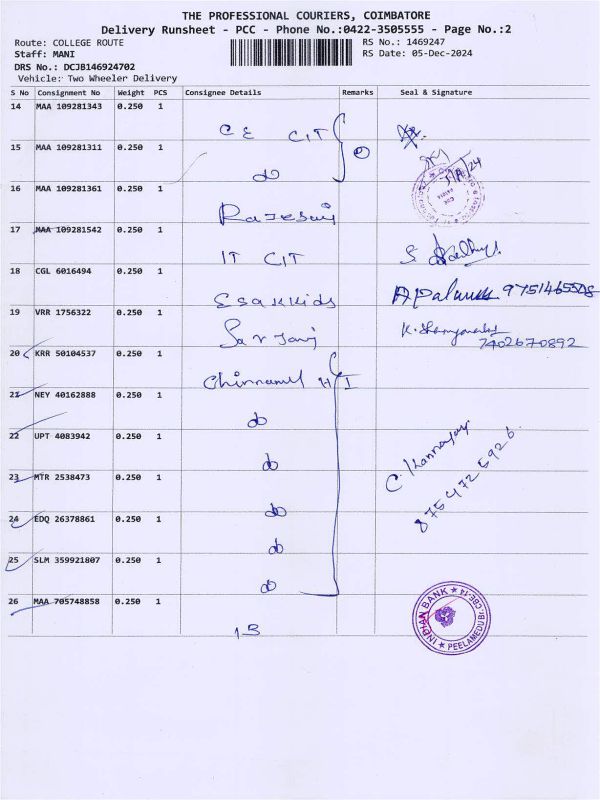 THE PROFESSIONAL COURIERS, COIMBATORE
Delivery Runsheet - PCC - Phone No.:0422-3505555 - Page No.:2
Route: COLLEGE ROUTE
RS No.: 1469247
Staff: MANI
RS Date: 05-Dec-2024
DRS No.: DCJB146924702
Vehicle: Two Wheeler Delivery
S No Consignment No Weight PCS Consignee Details Remarks Seal & Signature
14 MAA 109281343 0.250 1 CE CIT
15 MAA 109281311 0.250 1 do
16 MAA 109281361 0.250 1
17 MAA 109281542 0.250 1 IT CIT
18 CGL 6016494 0.250 1 Esakkids 9751465508
19 VRR 1756322 0.250 1 7402670892
20 KRR 50104537 0.250 1
21 NEY 40162888 0.250 1 do
22 UPT 4083942 0.250 1 do
23 MTR 2538473 0.250 1 do
24 EDQ 26378861 0.250 1 do
25 SLM 359921807 0.250 1 do
26 MAA 705748858 0.250 1 1B
INDIAN BANK
PEELAMEDU BR. CBE-14